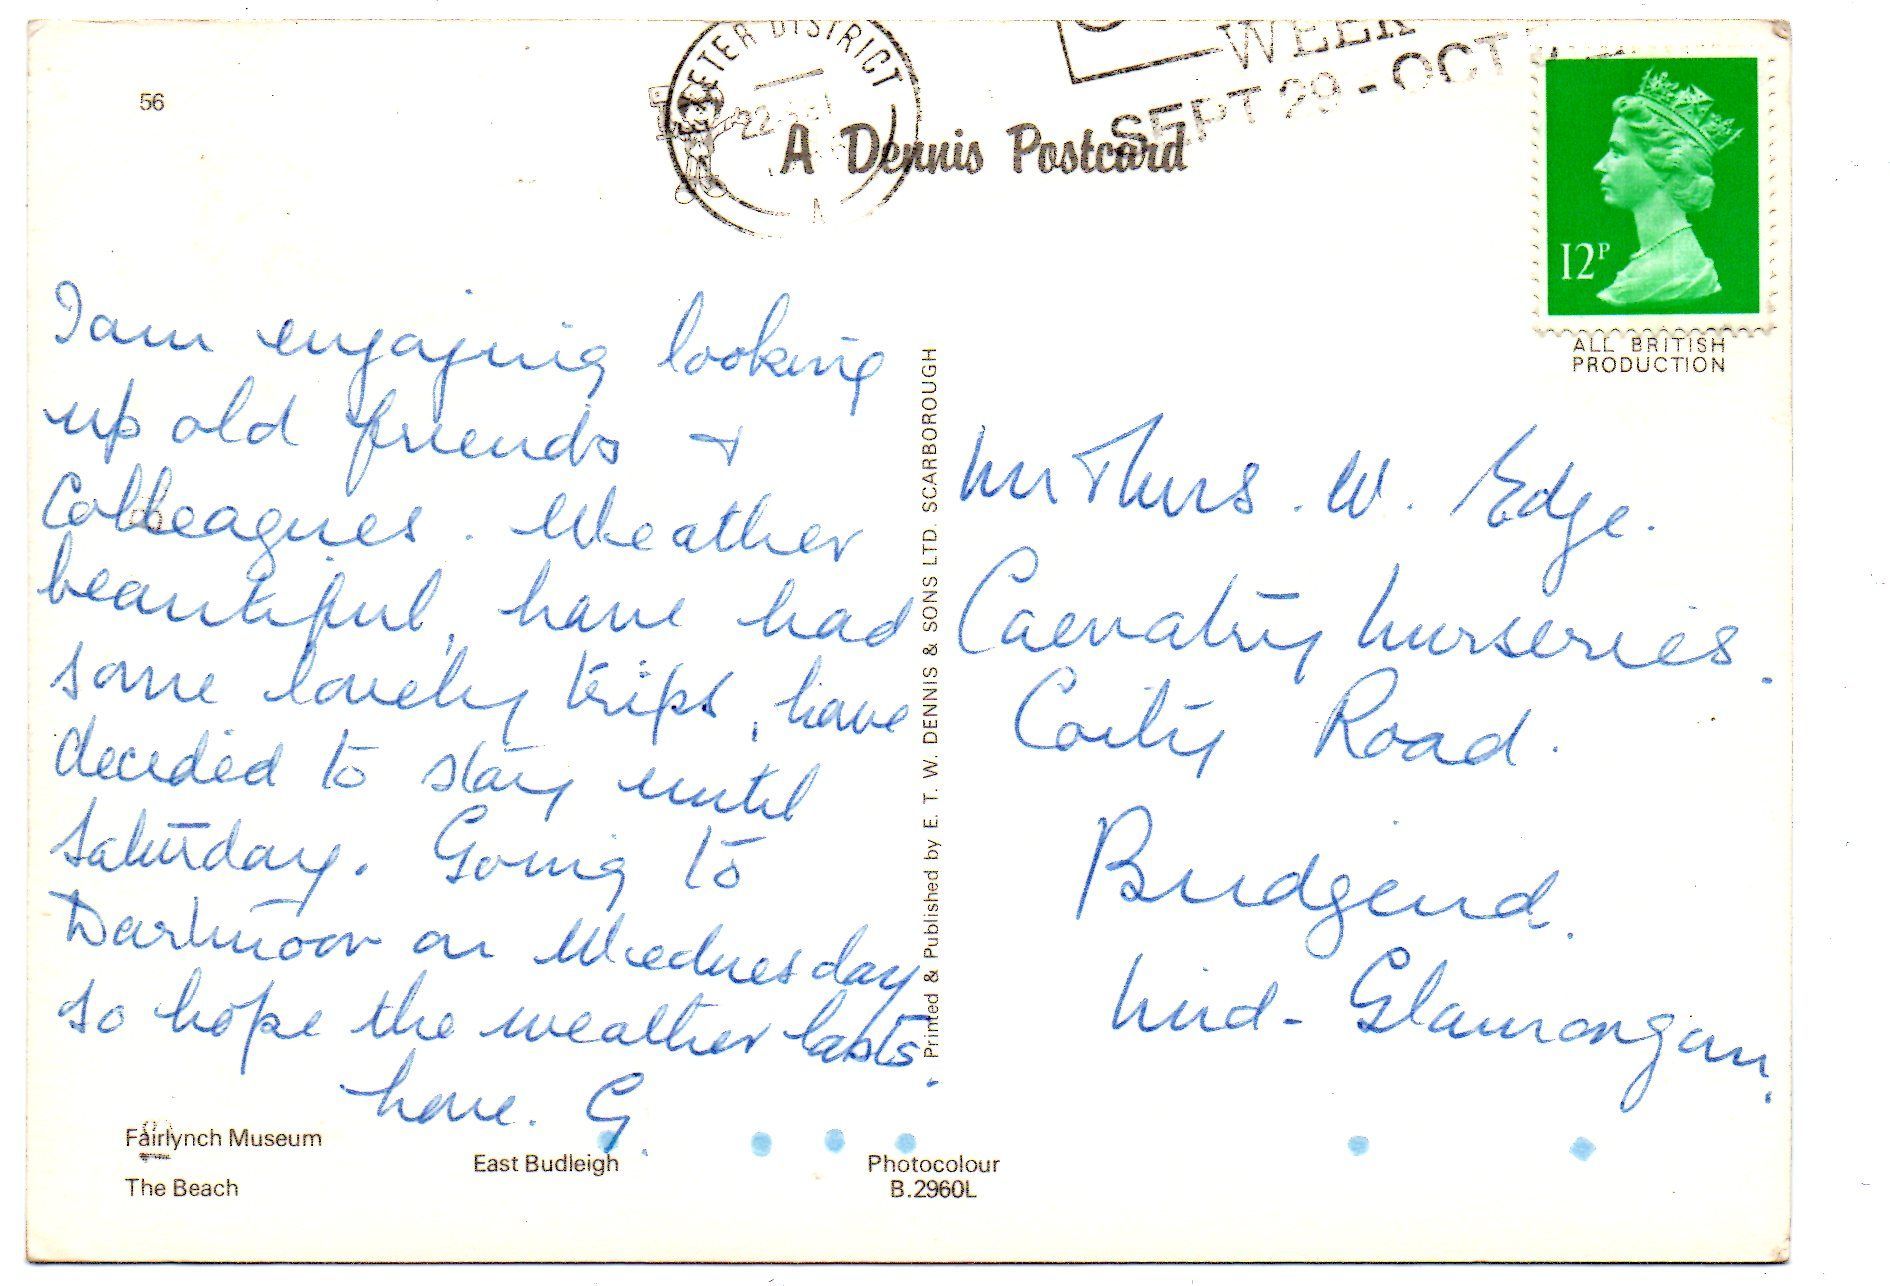 56
EXETER DISTRICT
22
A
WEEK
SEPT 29 - OCT
A Dennis Postcard
12P
ALL BRITISH
PRODUCTION
I am enjoying looking
up old friends +
Colleagues. Weather
beautiful, have had
some lovely trips, have
decided to stay until
Saturday. Going to
Dartmoor on Wednesday
so hope the weather lasts.
Love. G.
Printed & Published by E. T. W. DENNIS & SONS LTD. SCARBOROUGH
Mr & Mrs. W. Edge.
Nurseries.
Coity Road.
Bridgend.
Mid-Glamorgan.
Fairlynch Museum
The Beach
East Budleigh
Photocolour
B.2960L